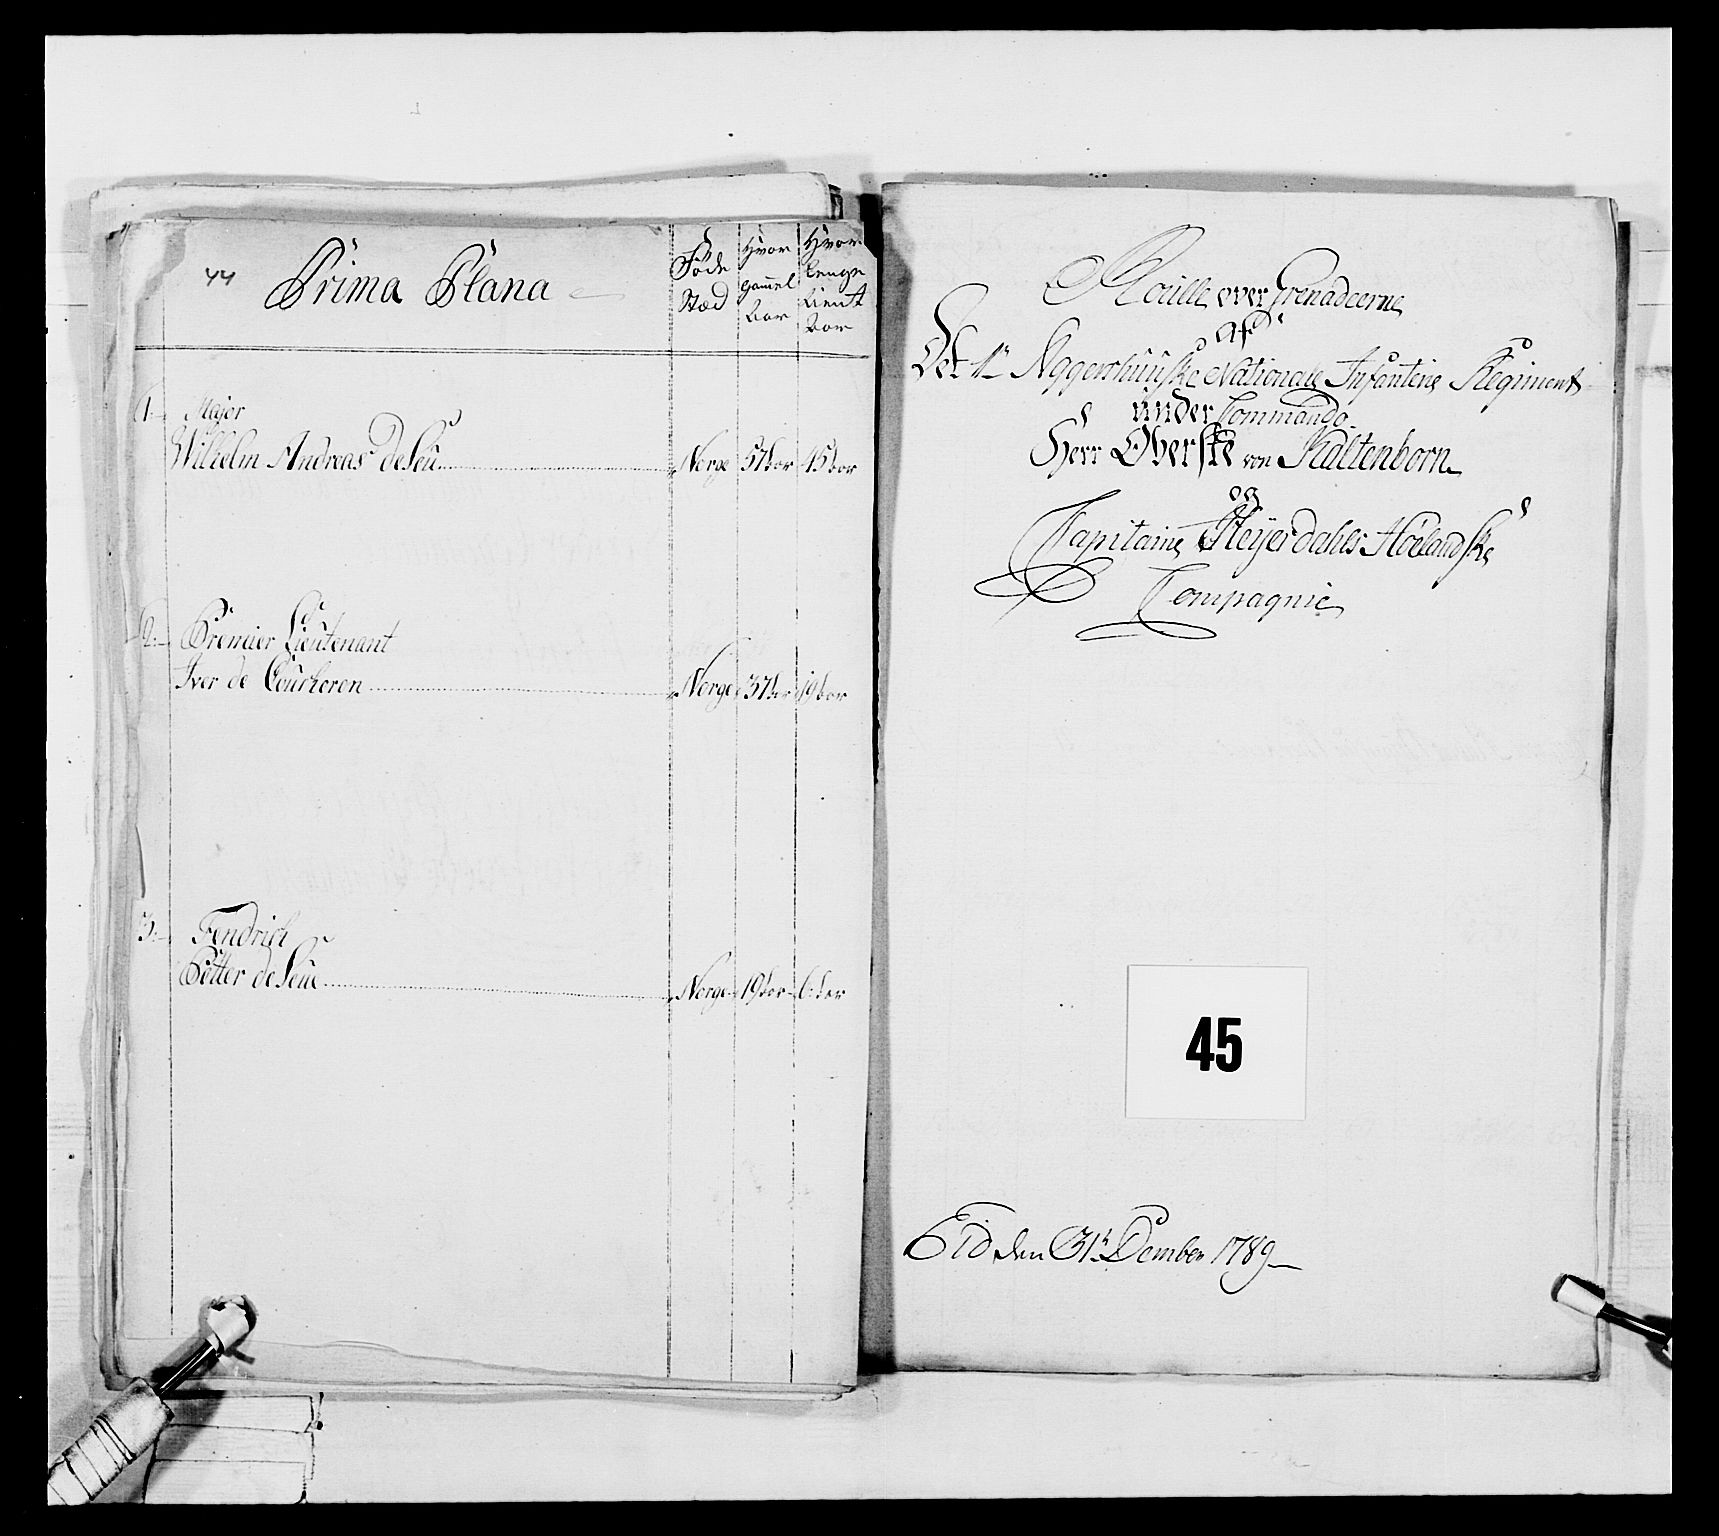 44 Prima Plana
Føde Stæd
Hvor gammel aar
Hvor lenge tient aar
1. Major
Wilhelm Andreas de Seu Norge 57 aar 45 aar
2. Premier Lieutenant
Iver de Coucheron Norge 37 aar 19 aar
3. Fendrich
Petter de Seue Norge 19 aar 6 aar
Roulle over Grenadeerne
af
Det 1te Aggershuusske Nationale Infanterie Regiment
under Commando
Herr Oberste von Kaltenborn
og
Capitaine Heÿerdahls Hølandske
Compagnie
45
Eid den 31te Dember 1789